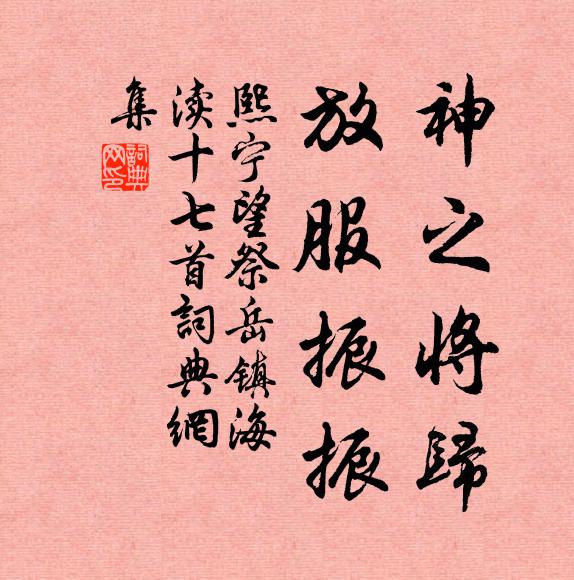 神之将歸
放服振振
熙宁望祭岳镇海
渎十七首詞典網
集
詞典
网印